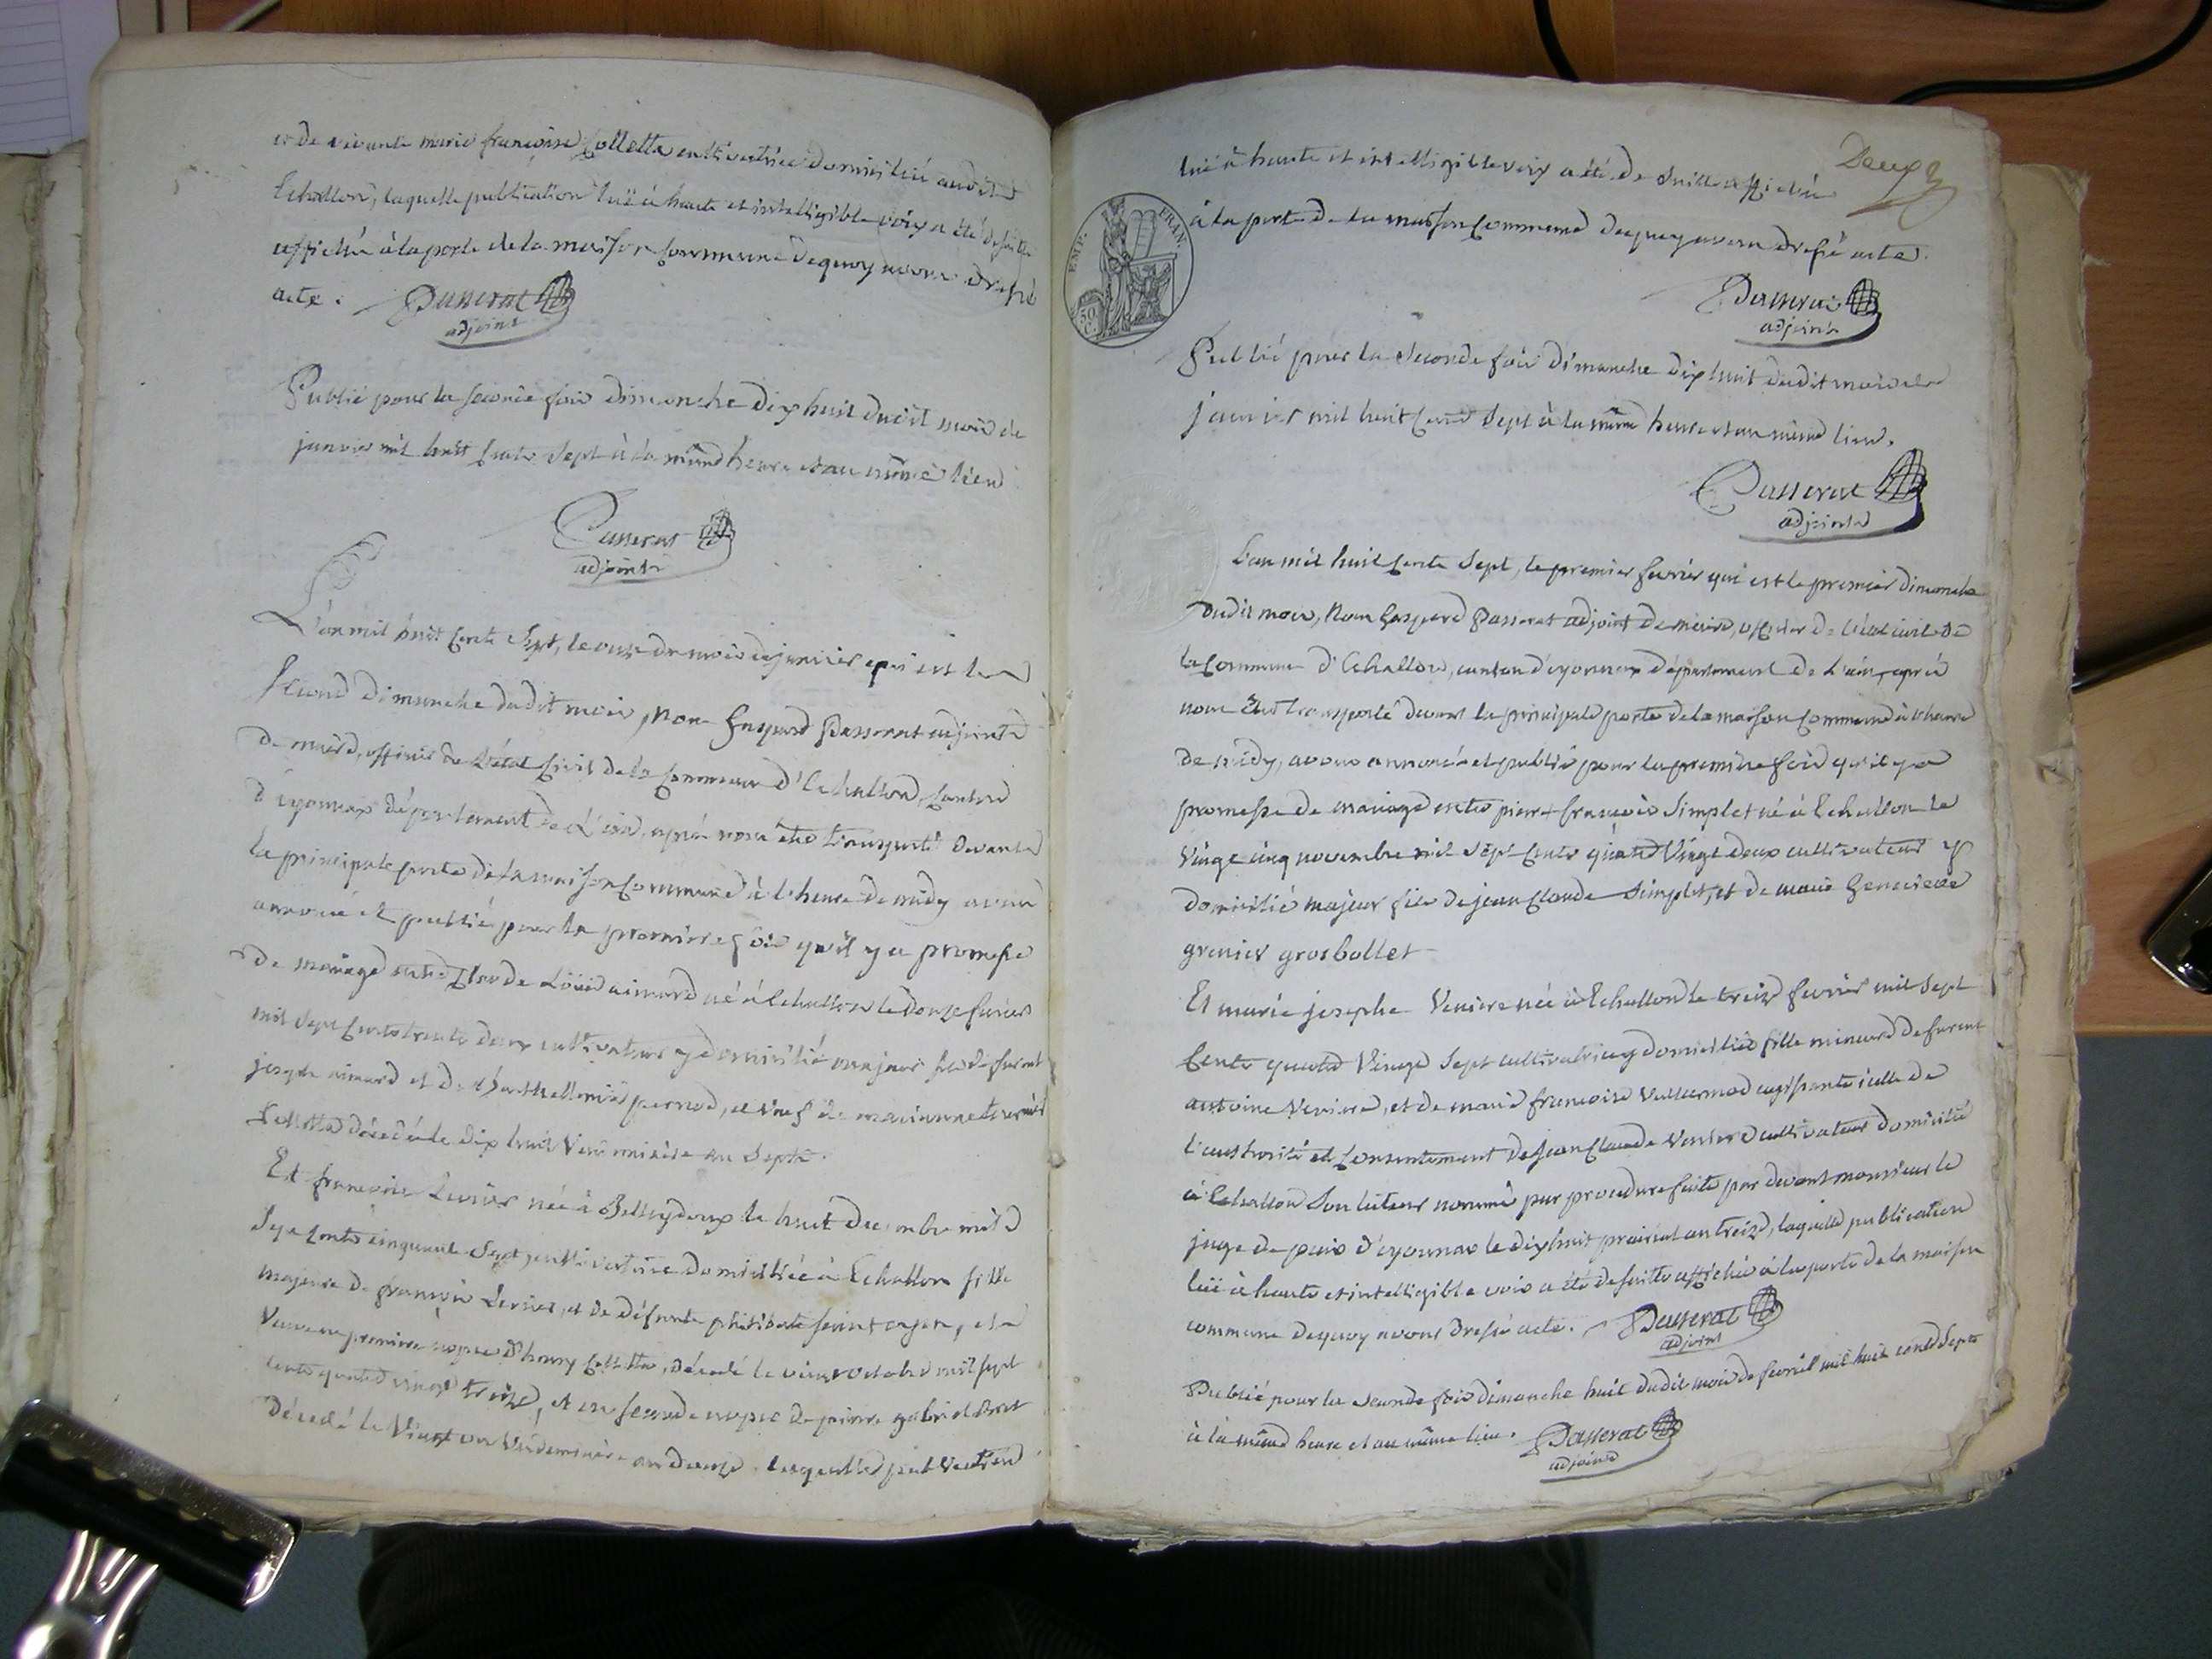 et de vivante marie françoise Colletta cultivatrice domiciliée audit
Echallon, laquelle publication luë à haute et intelligible voix a été de suitte
affichée à la porte de la maison commune dequoy avons dressé
acte. Passerat
adjoint
Publié pour la seconde fois dimanche dix huit dudit mois de
janvier mil huit cents sept à la même heure et au même lieu
Passerat
adjoint
L'an mil huit cents sept, le onze du mois de janvier qui est le
second dimanche dudit mois, Nous Gaspard Passerat adjoint
de maire, officier de l'état civil de la commune d'Echallon, canton
d'oyonnax département de L'ain, après nous être transporté devant
la principale porte de la maison commune à l'heure de midy avons
annoncé et publié pour la premiere fois qu'il y a promesse
de mariage entre Claude Loüis aimard né à Echallon le douze fevrier
mil sept cents trente deux cultivateur y domicilié majeur fils de furent
joseph aimard et de Barthellemie pernod, et veuf de marianne
Colletta décédée le dix huit Vendemiaire an Sept.
Et françoise né à Belleydoux le huit decembre mil
Sept cents cinquante Sept, cultivatrice domiciliée à Echallon fille
majeure de françois et de défunte philiberte, et
Veuve en premiere nopce d'henry Colletta, décédé le vingt octobre mil sept
cents quatre vingt treize, et en seconde nopce de pierre gabriel
décédé le Vingt un Vendemiaire an douze. laquelle publication
Deux
luë à haute et intelligible voix a été de suitte affichée
à la porte de la maison commune dequoy avons dressé acte.
EMP. FRAN.
50 C.
Passerat
adjoint
Publié pour la seconde fois dimanche dix huit dudit mois de
janvier mil huit cents sept à la même heure et au même lieu.
Passerat
adjoint
L'an mil huit cents Sept, le premier fevrier qui est le premier dimanche
dudit mois, Nous Gaspard Passerat adjoint de maire, officier de l'état civil de
la commune d'Echallon, canton d'oyonnax département de L'ain, après
nous être transporté devant la principale porte de la maison commune à l'heure
de midy, avons annoncé et publié pour la premiere fois qu'il y a
promesse de mariage entre pierre françois Simplet né à Echallon le
Vingt cinq novembre mil sept cents quatre Vingt deux cultivateur y
domicilié majeur fils de jean Claude Simplet, et de marie Genevieve
grenier grosbollet
Et marie josephe née à Echallon le treize fevrier mil sept
Cents quatre Vingt Sept cultivatrice y domiciliée fille mineure de furent
antoine et de marie françoise Vuillermoz agissante icelle de
l'authorité et consentement de jean Claude cultivateur domicilié
à Echallon Son tuteur nommé par procedure faite par devant monsieur le
juge de paix d'oyonnax le dixhuit prairial an treize, laquelle publication
luë à haute et intelligible voix a été de suitte affichée à la porte de la maison
commune dequoy avons dressé acte. Passerat
adjoint
Publié pour la seconde fois dimanche huit dudit mois de fevrier mil huit cents Sept
à la même heure et au même lieu. Passerat
adjoint